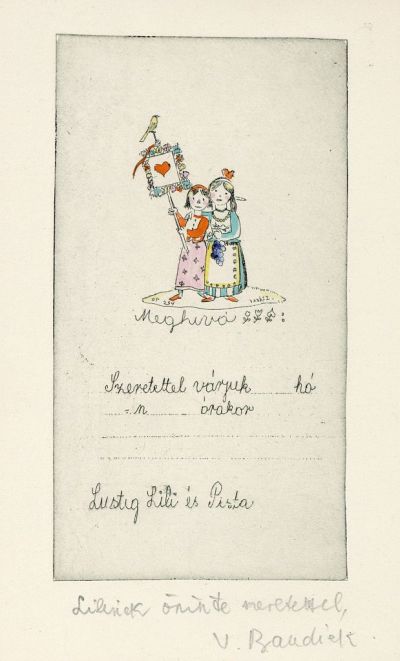 OP 254
Meghívó
Szeretettel várjuk hó
-n órakor
Lustig Lili és Piszta
Lilinek őszinte szeretettel,
V.